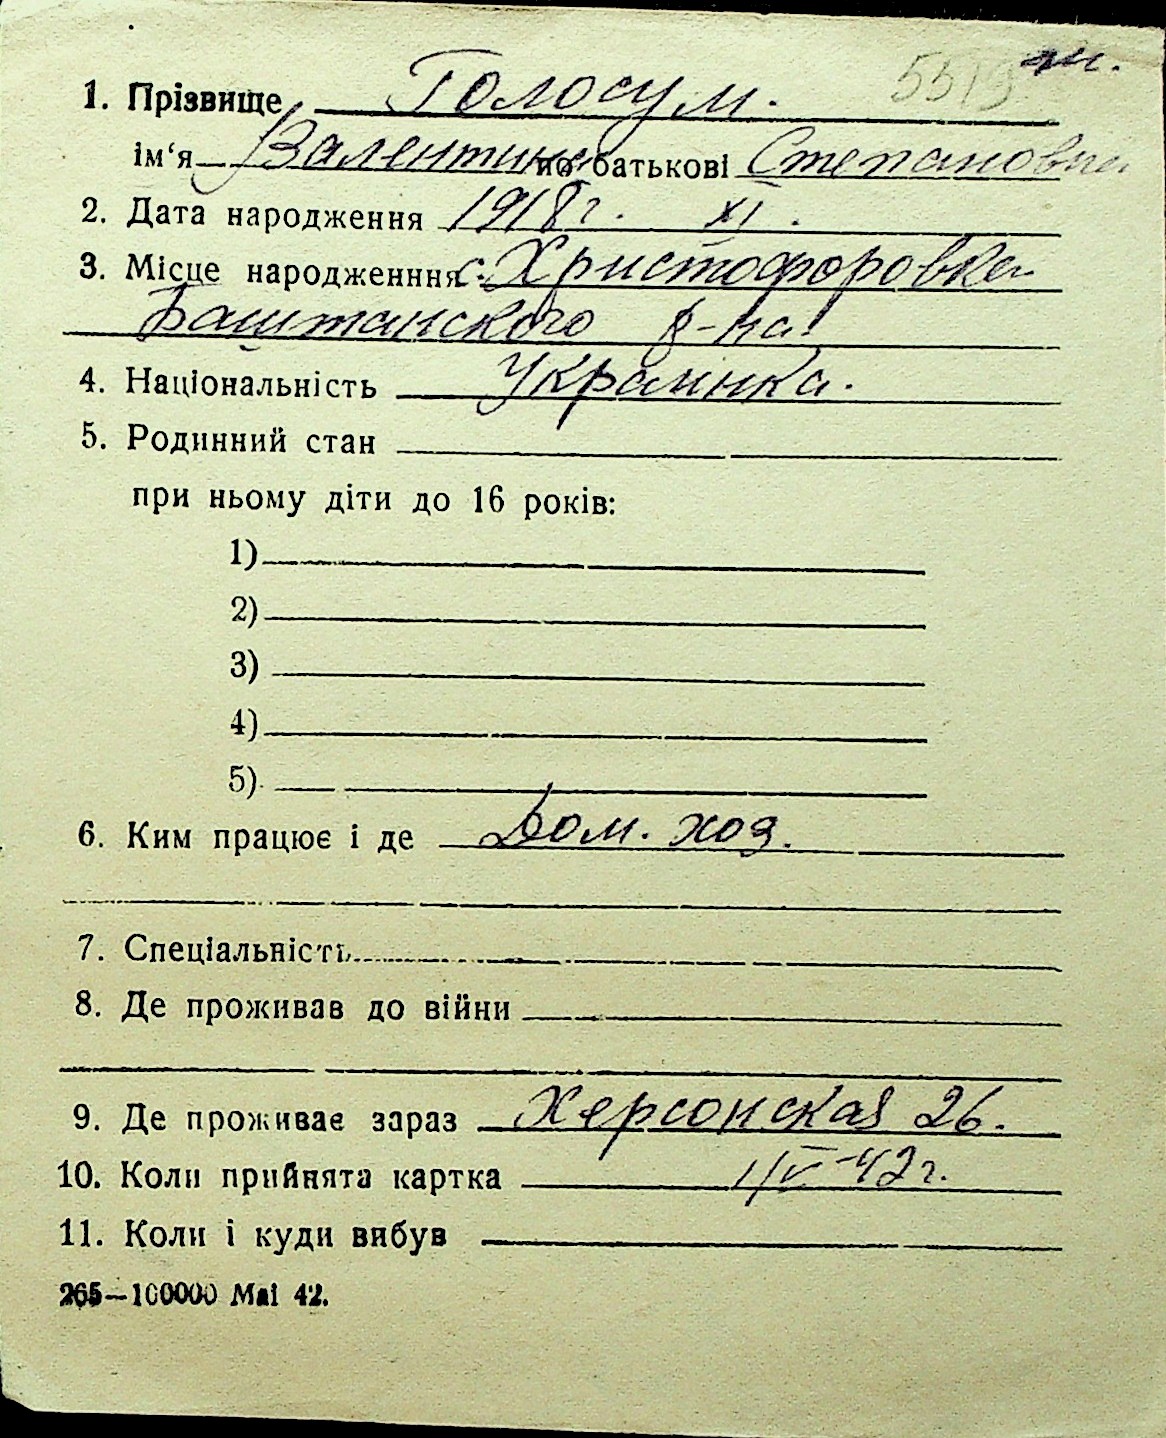 5519
1. Прізвище Голосум.
ім‘я Валентина по батькові Степановна
2. Дата народження 1918 г. XI.
3. Місце народженння с. Христофоровка
Баштанского р-на
4. Національність Украинка.
5. Родинний стан
при ньому діти до 16 років:
1)
2)
3)
4)
5)
6. Ким працює і де Дом. хоз.
7. Спеціальність
8. Де проживав до війни
9. Де проживає зараз Херсонская 26.
10. Коли прийнята картка 1/V-42 г.
11. Коли і куди вибув
265—100000 Маі 42.